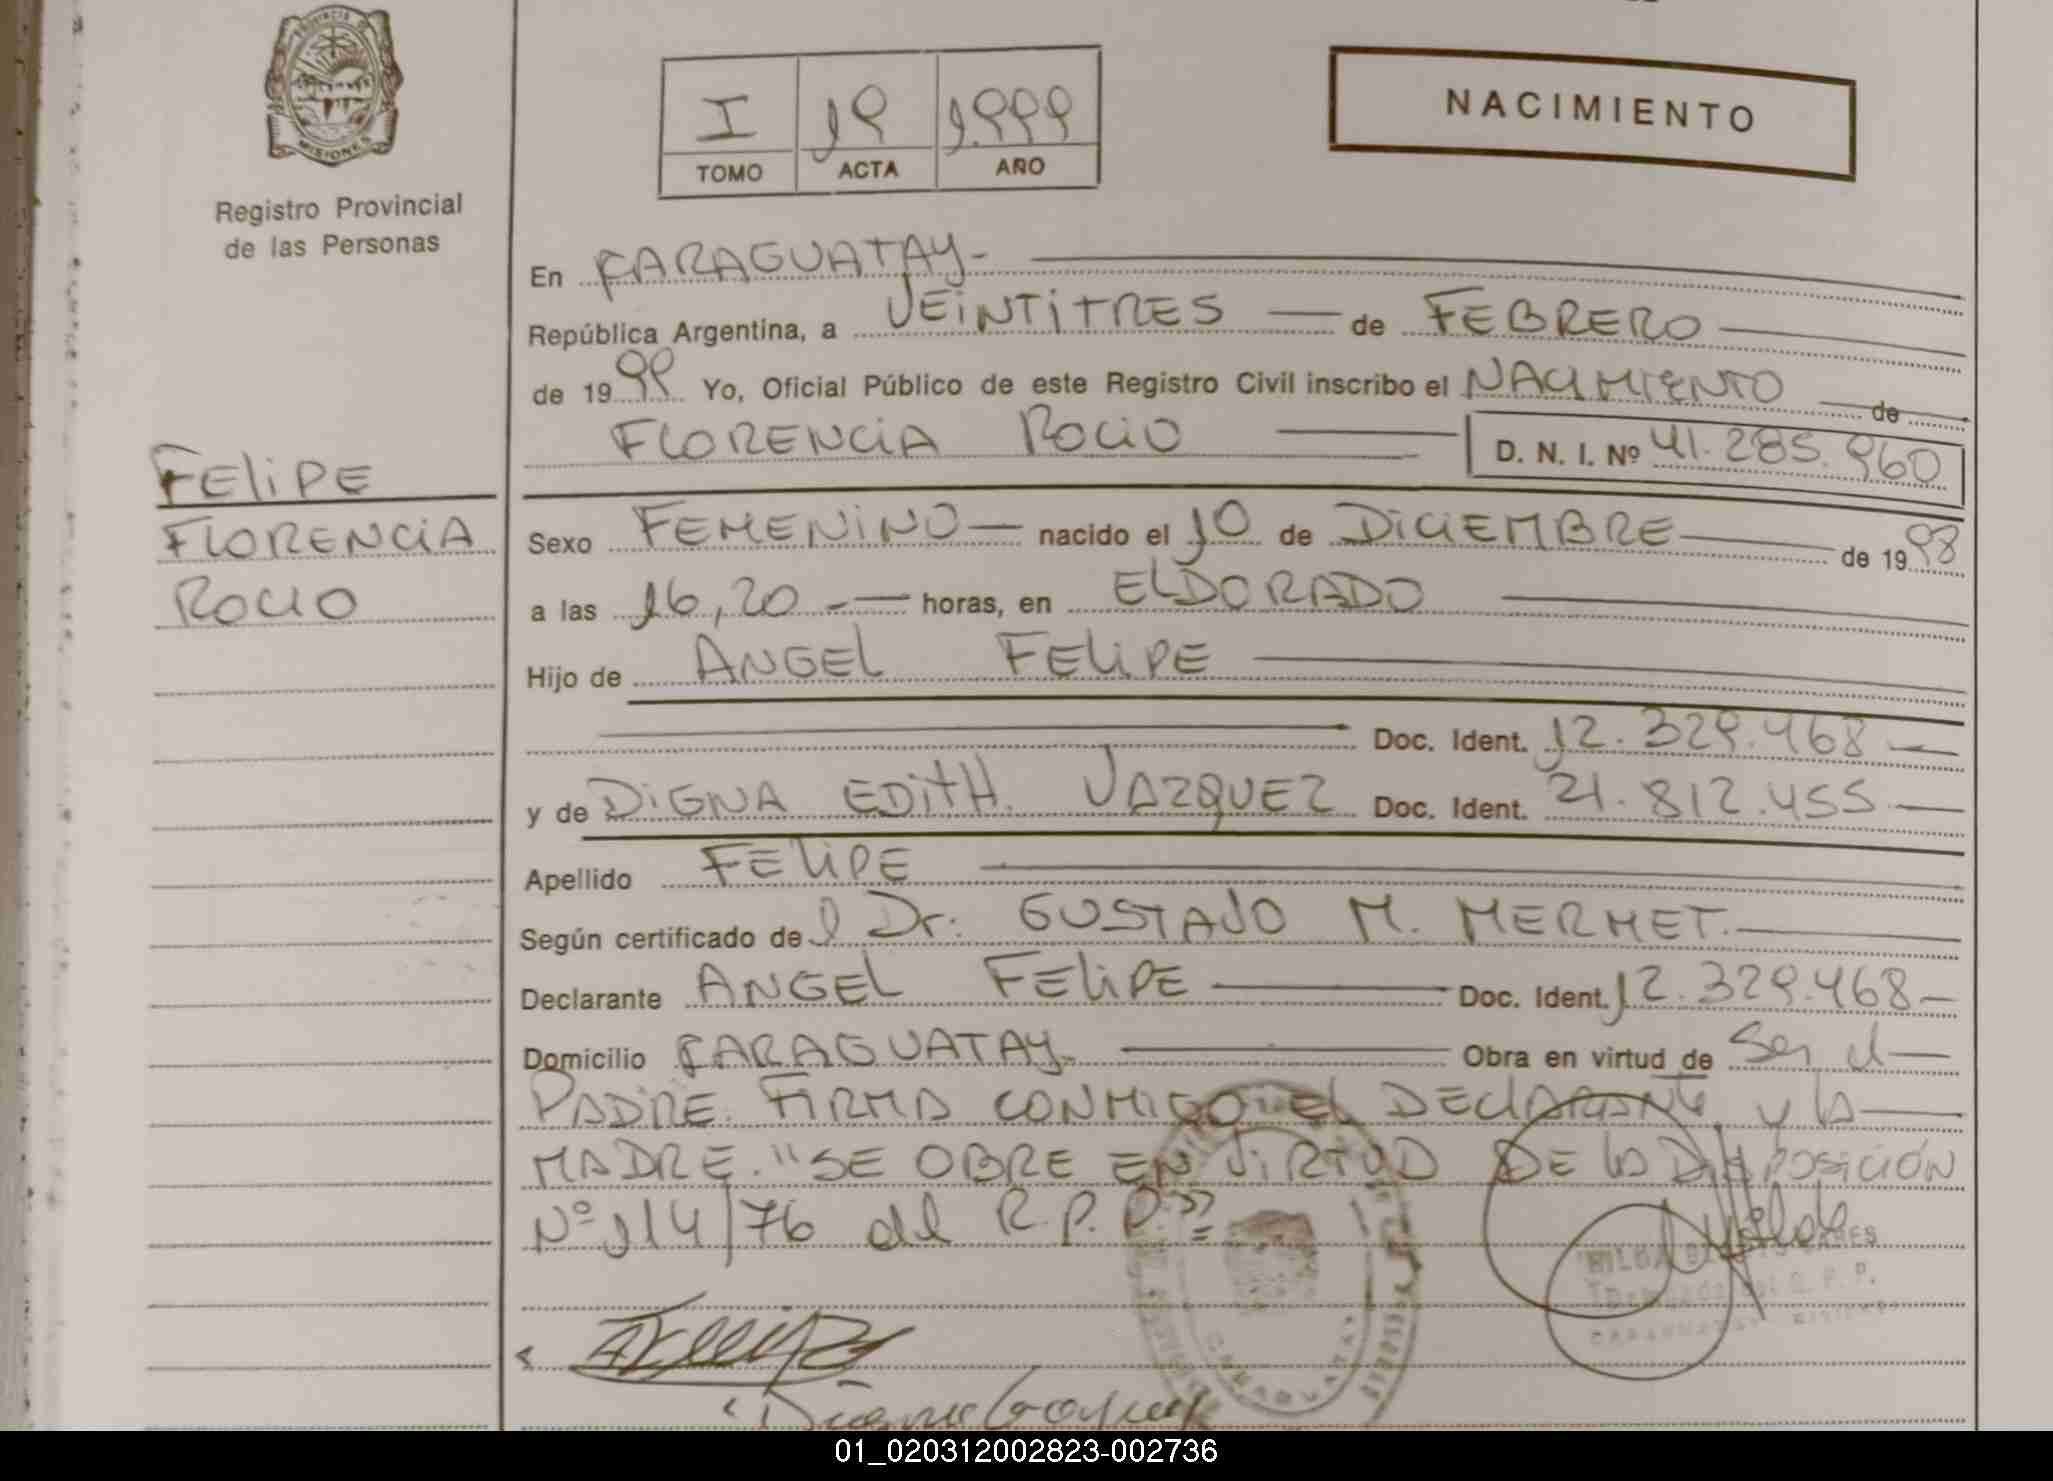 PROVINCIA DE
MISIONES
Registro Provincial
de las Personas
I 19 1.999
TOMO ACTA AÑO
NACIMIENTO
En CARAGUATAY-
República Argentina, a VEINTITRES de FEBRERO
de 1999 Yo, Oficial Público de este Registro Civil inscribo el NACIMIENTO de
FLORENCIA ROCIO D. N. I. Nº 41.285.960
FELIPE
FLORENCIA
ROCIO
Sexo FEMENINO nacido el 10 de DICIEMBRE de 1998
a las 16,20 horas, en ELDORADO
Hijo de ANGEL FELIPE
Doc. Ident. 12.329.468
y de DIGNA EDITH. VAZQUEZ Doc. Ident. 21.812.455
Apellido FELIPE
Según certificado del Dr. GUSTAVO M. MERMET.
Declarante ANGEL FELIPE Doc. Ident. 12.329.468
Domicilio CARAGUATAY. Obra en virtud de Ser el
PADRE. FIRMA CONMIGO EL DECLARANTE y la
MADRE. "SE OBRE EN VIRTUD DE la DISPOSICIÓN
Nº 114/76 del R.P.P."=
CARAGUATAY
01_020312002823-002736